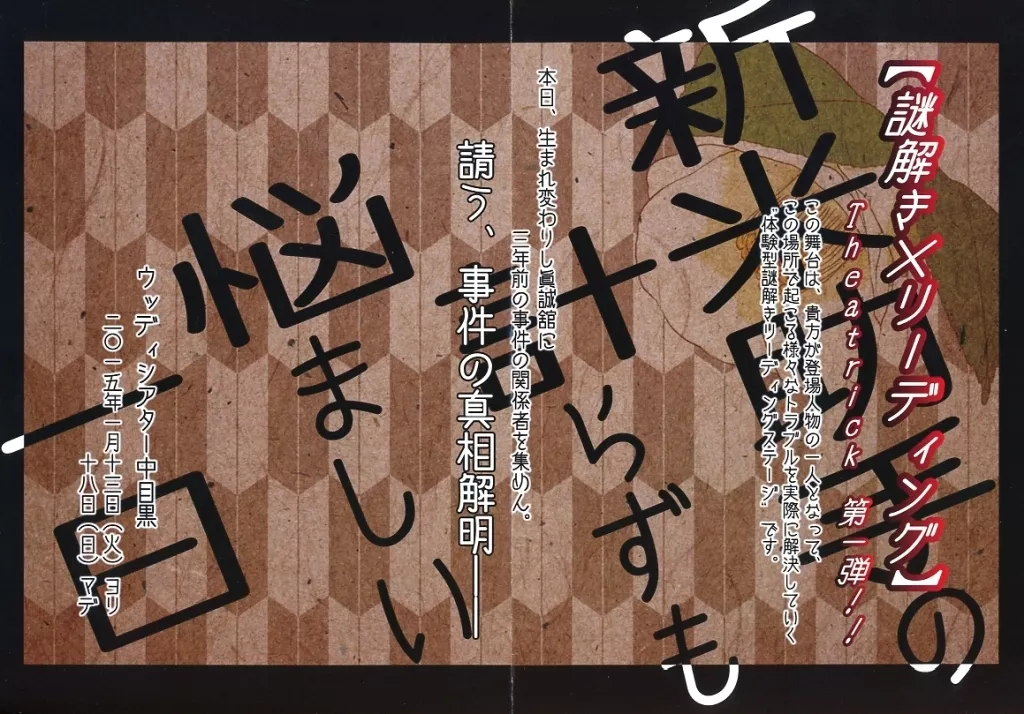 【謎解き×リーディング】
Theatrick 第一弾!!
この舞台は、貴方が登場人物の一人となって、
この場所で起こる様々なトラブルを実際に解決していく
“体験型謎解きリーディングステージ”です。
新米の
計らずも
悩ましい
一日
本日、生まれ変わりし眞誠舘に
三年前の事件の関係者を集めん。
請う、事件の真相解明――
ウッディシアター中目黒
二〇一五年一月十三日(火)ヨリ
十八日(日)マデ